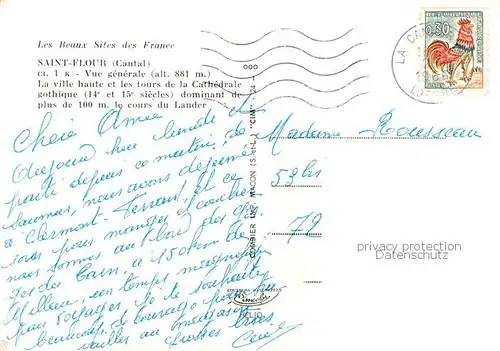 Les Beaux Sites des France
SAINT-FLOUR (Cantal)
CI. 1 K - Vue générale (alt. 881 m.)
La ville haute et les tours de la Cathédrale
gothique (14e et 15e siècles) dominant de
plus de 100 m. le cours du Lander
0,30
LA CAN
Chère Amie
hier lundi
parti depuis ce matin, de
Saumur, nous avons déjeuné
à Clermont-Ferrand, et ce
soir pour manger et coucher
nous sommes au bord des Gor
ges du Tarn, à 150 km de
Millau, un temps magnifique
pour voyager. Je te souhaite
beaucoup de courage pour
au magasin
Grosses bises
COMBIER IMP. MACON (S.-et-L.) "CIM"
Madame Rousseau
53 bis
72
privacy protection
Datenschutz